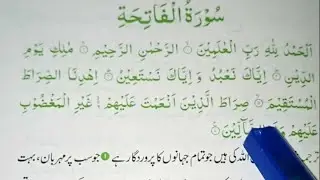 سُوْرَةُ الْفَاتِحَةِ
اَلْحَمْدُ لِلّٰهِ رَبِّ الْعٰلَمِيْنَ ۝ الرَّحْمٰنِ الرَّحِيْمِ ۝ مٰلِكِ يَوْمِ
الدِّيْنِ ۝ اِيَّاكَ نَعْبُدُ وَ اِيَّاكَ نَسْتَعِيْنُ ۝ اِهْدِنَا الصِّرَاطَ
الْمُسْتَقِيْمَ ۝ صِرَاطَ الَّذِيْنَ اَنْعَمْتَ عَلَيْهِمْ ۙ غَيْرِ الْمَغْضُوْبِ
عَلَيْهِمْ الضَّآلِّيْنَ ۝
اللہ کی ہیں جو تمام جہانوں کا پروردگار ہے ۞ جو سب پر مہربان، بہت